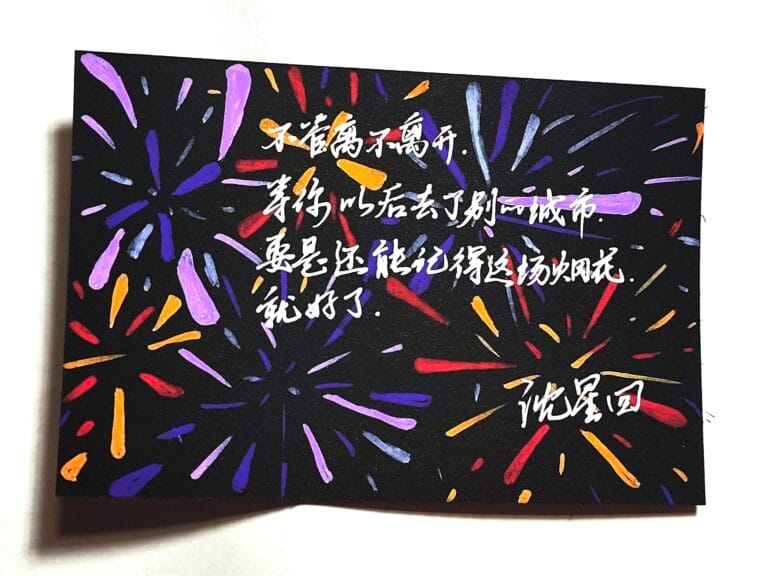 不管离不离开.
等你以后去了别的城市.
要是还能记得这场烟花.
就好了.
沈星回